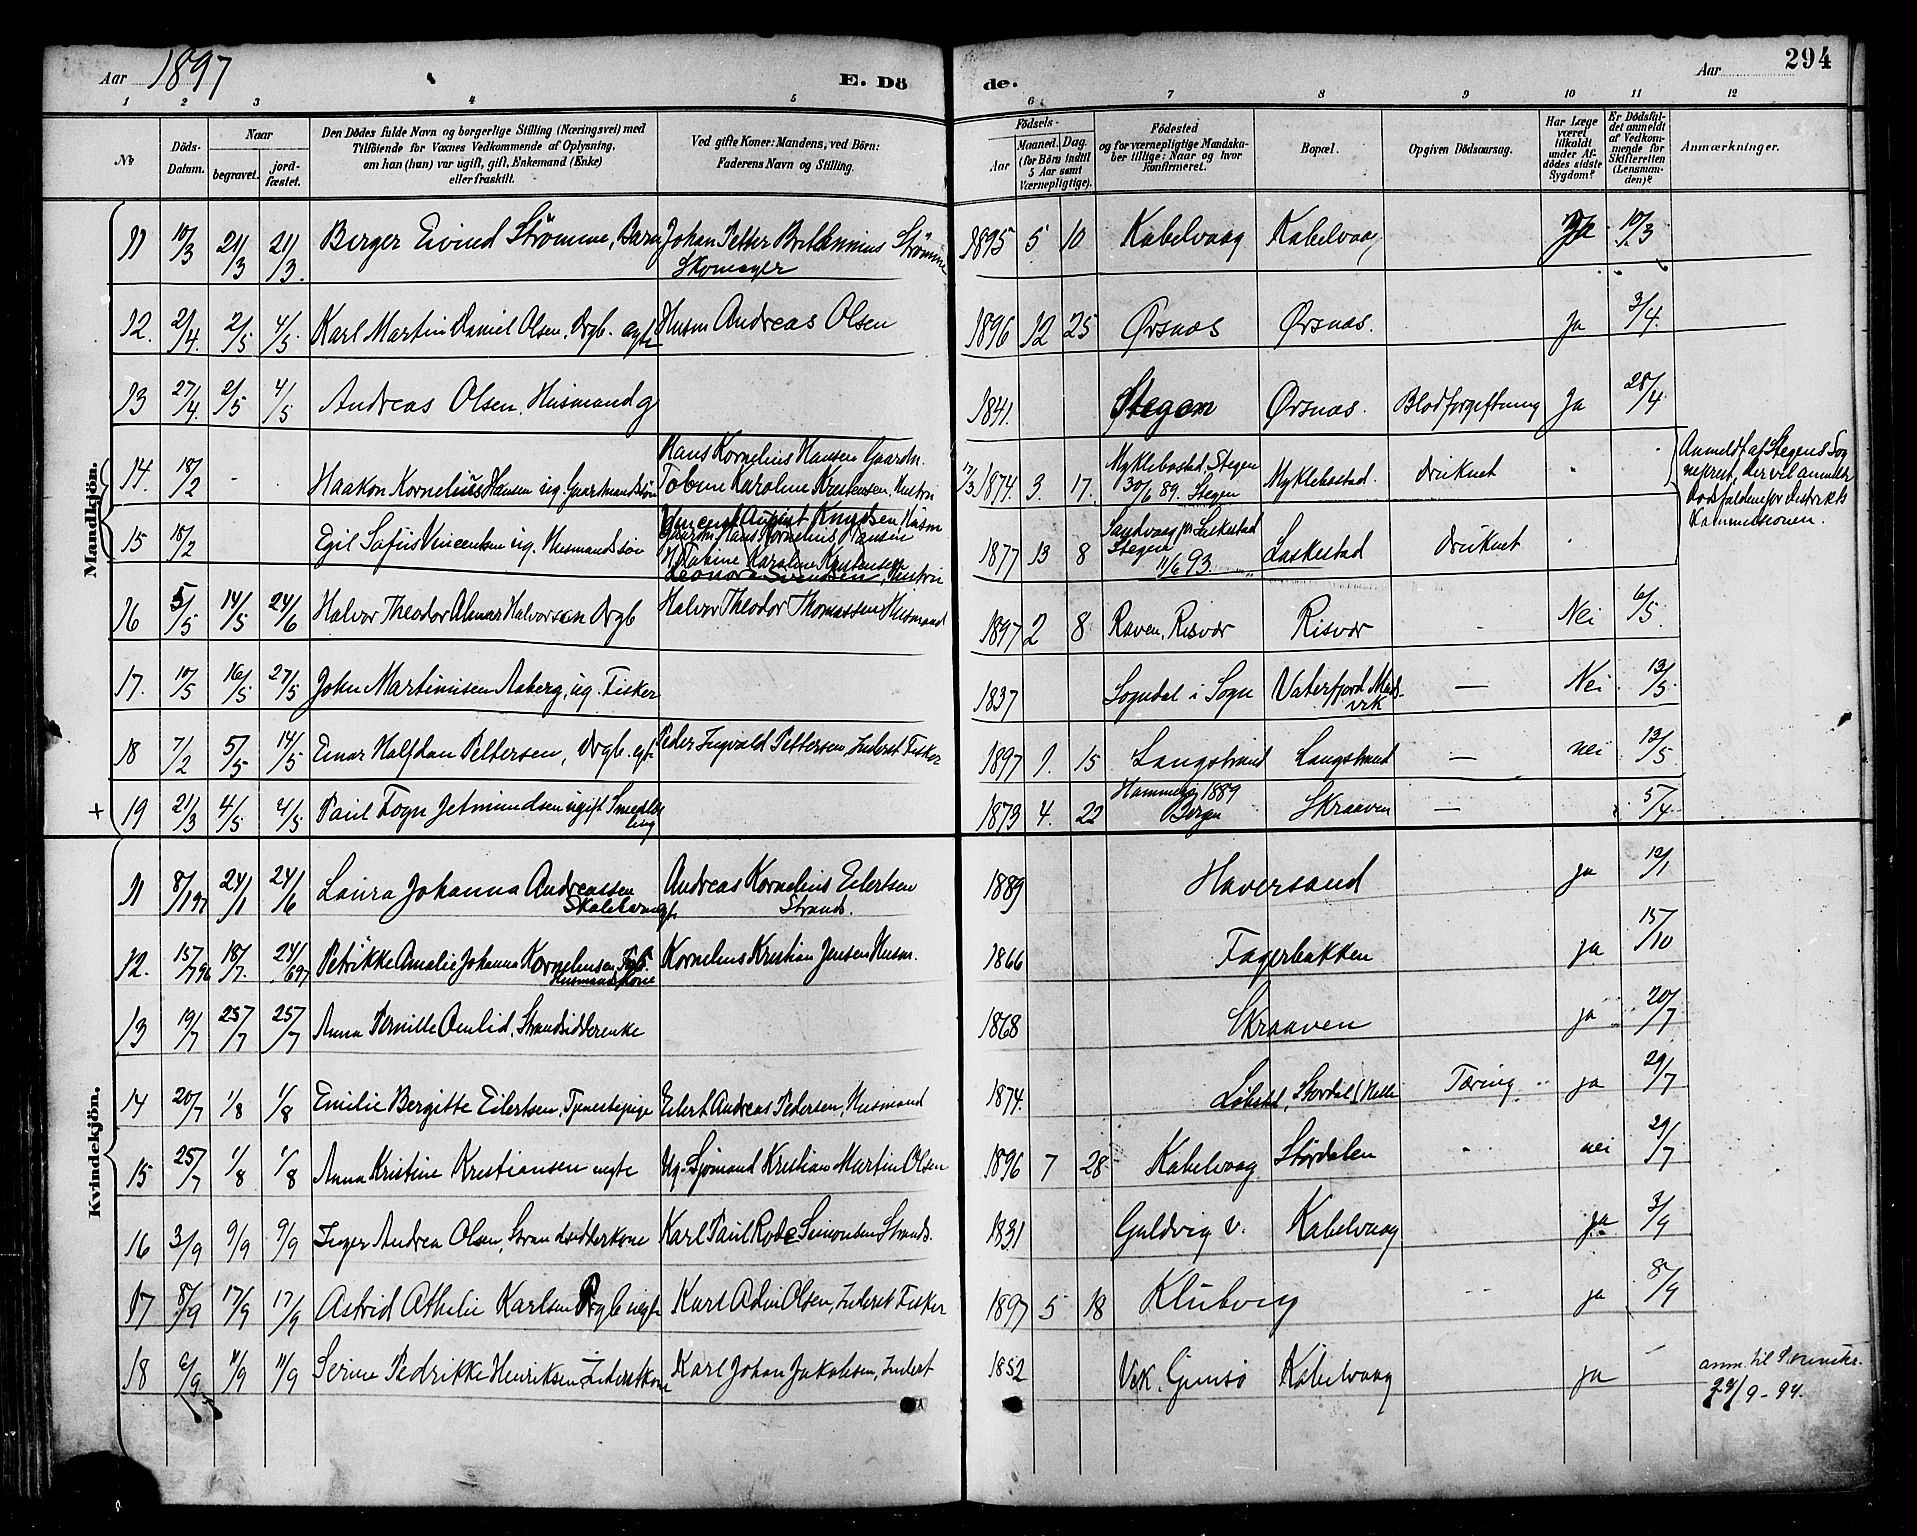 Aar 1897 E. Dö de. Aar 294
1 2 3 4 5 6 7 8 9 10 11 12
No
Döds-Datum.
Naar
begravet.
jord-fæstet.
Den Dödes fulde Navn og borgerlige Stilling (Næringsvei) med
Tilföiende for Voxnes Vedkommende af Oplysning,
om han (han) var ugift, gift, Enkemand (Enke)
eller fraskilt.
Ved gifte Koner: Mandens, ved Börn:
Faderens Navn og Stilling.
Födsels-
Aar
Maaned. Dag.
(for Börn indtil
5 Aar samt
Værnepligtige).
Födested
og for værnepligtige Mandska-
ber tillige: Naar og hvor
konfirmeret.
Bopæl.
Opgiven Dödsaarsag.
Har Læge
været
tilkaldt
under Af-
dödes sidste
Sygdom?
Er Dödsfal-
det anmeldt
af Vedkom-
mende for
Skifteretten
(Lensman-
den)?
Anmærkninger.
Mandkjön.
11 10/3 21/3 21/3 Berger Eivind Strömme, Barn Johan Petter Britannius Strömme Skomager 1895 5 10 Kabelvaag Kabelvaag Ja 10/3
12. 2/4 2/5 4/5 Karl Martin Daniel Olsen, Drgb. ægte Husm Andreas Olsen 1896 12 25 Ørsnæs Ørsnæs. Ja 3/4
13 27/4 2/5 4/5 Andreas Olsen, Husmand g 1841. Stegen Ørsnæs. Blodforgiftning Ja 28/4
14. 18/2 - - Haakon Kornelius Hansen ug. Gaardmandssön Hans Kornelius Hansen Gaardm. Tobine Karoline Kristensen, Hustru 17/3 1874. 3. 17. Myklebostad, Stegen 30/6 89. Stegen Myklebostad. druknet
Anmeldt af Stegens Sog
nepræst, der vil anmelde
Dödsfaldene for Distrikts
Kommissionen.
15 18/2 Egil Vincentsen ug. Husmandssön Vincent August Knudsen, Husm Gaardm. Hans Kornelius Hansen Tobine Karoline Kristensen Leonora Svendsen, Hustru 1877 13 8 Sandvaag pr Laskestad Stegen 11/6 93. Laskestad druknet
16 5/5 14/5 24/6 Halvor Theodor Almar Halvorsen Drgb Halvor Theodor Thomassen Husmand 1897 2 8 Raven, Risvær Risvær - Nei 6/5.
17. 10/5 16/5 27/5 John Martinusen Aaberg, ug. Fisker 1837 Sogndal i Sogn Vaterfjord — Nei 13/5
18 7/2 5/5 14/5 Einar Halfdan Pettersen, Drgb. ægt. Peder Ingvald Pettersen, Inderst Fisker 1897 1. 15 Langstrand Langstrand — nei 13/5
+ 19 21/3 4/5 4/5 Paul Fogn Jetmundsen ugift 1873 4. 22 1889 Bergen Skraaven — 5/4
Kvindekjön.
11 8/1 97 24/1 24/6 Laura Johanna Andreassen Andreas Kornelius Eilertsen Strands. 1889 Haversand ja 12/1
12. 15/7 96 18/7. 24/6 97 Petrikke Amalie Johanna Kornelius Kristian Jensen Husm. 1866 Fagerbakken ja 15/10
13 19/7 25/7 25/7 Anna Pernille, Strandsidderenke 1868 Skraaven ja 20/7
14 20/7 1/8 1/8 Emilie Bergitte Eilertsen, Tjenestepige Eilert Andreas Pedersen, Husmand 1874. Stordal Tæring ja 29/7
15 25/7 1/8 1/8 Anna Kristine Kristiansen uægte Ug. Sjömand Kristian Martin Olsen 1896 7 28 Kabelvaag Stordalen nei 29/7
16 3/9 9/9 9/9 Inger Andrea Olsen, Strandsidderkone Karl Paul Simonsen Strands. 1831 Guldvig v. Kabelvaag ja 3/9
17 8/9 17/9 17/9 Astrid Athelie Karlsen Drgb uægte Karl Olsen, Inderst Fisker 1897 5 18 Klubvig ja 8/9
18 6/9 11/9 11/9 Serine Pedrikke Henriksen, Inderstkone Karl Johan Jakobsen, Inderst 1852 Vek. Gimsö Kabelvaag ja